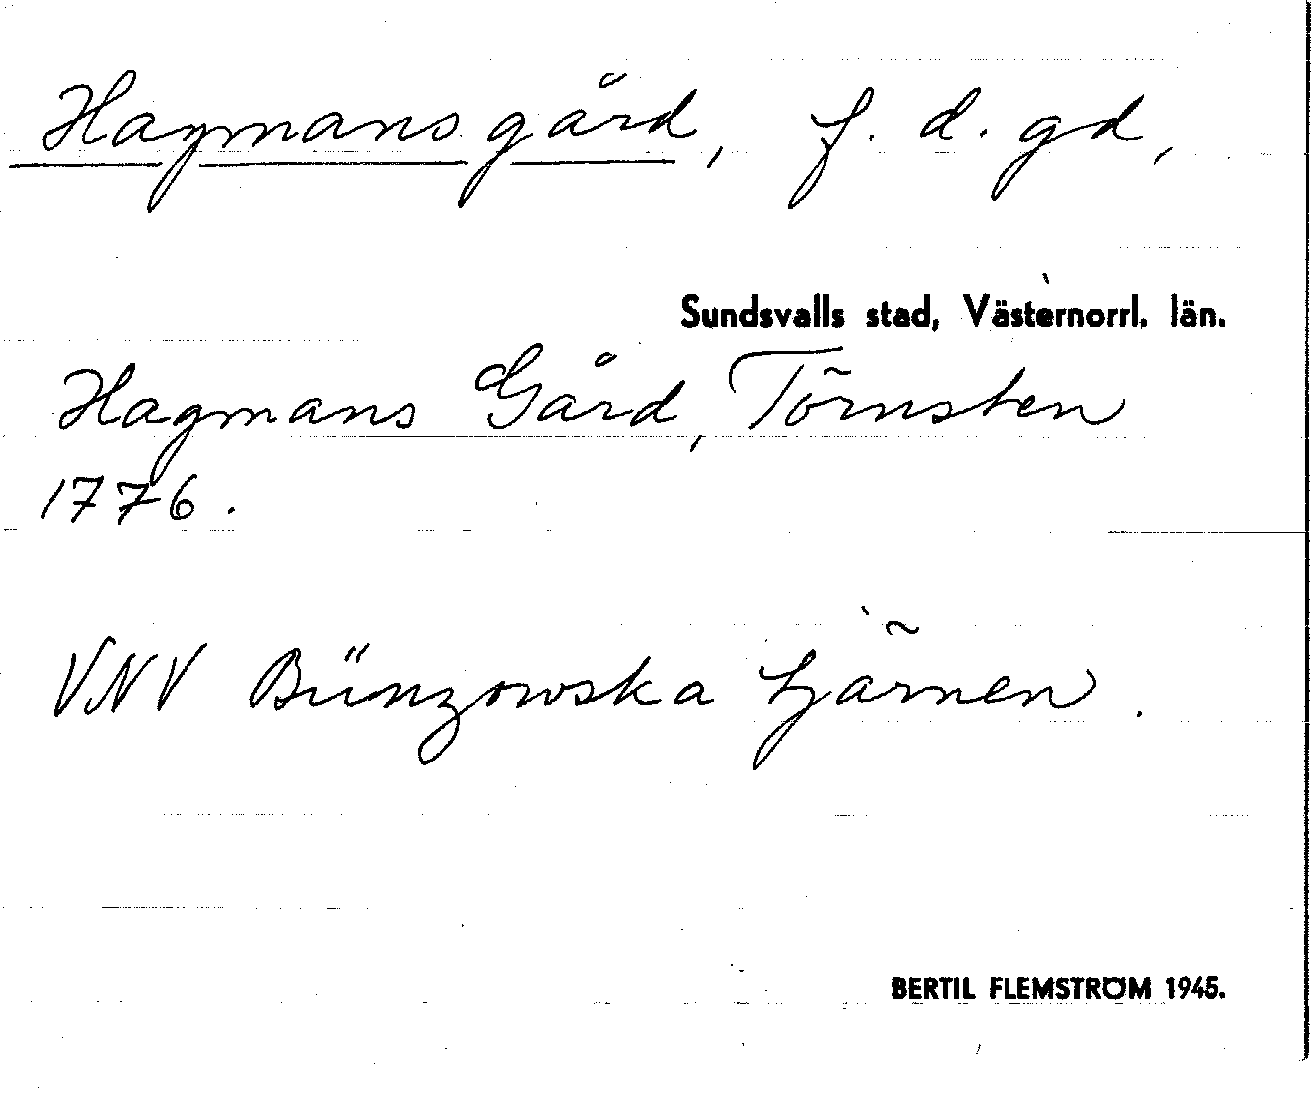 Hagmansgård, f. d. gd,
Sundsvalls stad, Västernorrl. län.
Hagmans Gård, Törnsten
1776.
VNV Bünzowska tjärnen.
BERTIL FLEMSTRÖM 1945.